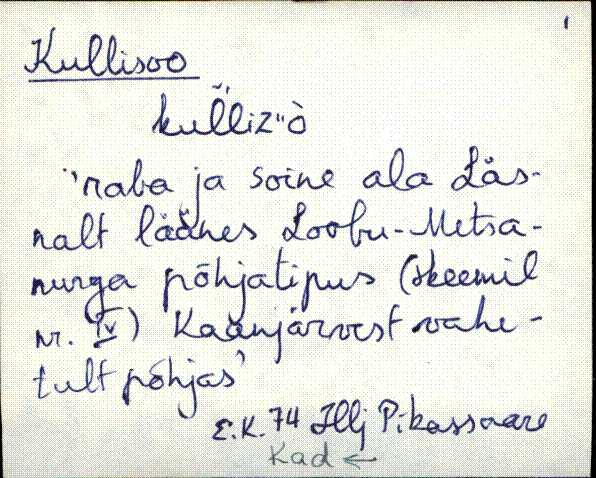 Kullisoo
kulliz"ò
'raba ja soine ala Läs-
nalt läänes Loobu-Metsa-
nurga põhjatipus (skeemil
nr. IV) Kaanjärvest vahe-
tult põhjas'
E.K. 74 Illj Pikassaare
Kad ←